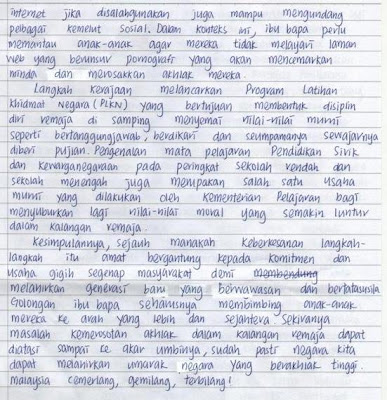 internet jika disalahgunakan juga mampu mengundang
pelbagai kemelut sosial. Dalam konteks ini, ibu bapa perlu
memantau anak-anak agar mereka tidak melayari laman
web yang berunsur pornografi yang akan mencemarkan
minda dan merosakkan akhlak mereka.
Langkah kerajaan melancarkan Program Latihan
Khidmat Negara (PLKN) yang bertujuan membentuk disiplin
diri remaja di samping menyemai nilai-nilai murni
seperti bertanggungjawab, berdikari dan seumpamanya sewajarnya
diberi pujian. Pengenalan mata pelajaran Pendidikan Sivik
dan kewarganegaraan pada peringkat sekolah rendah dan
sekolah menengah juga merupakan salah satu usaha
murni yang dilakukan oleh Kementerian Pelajaran bagi
menyuburkan lagi nilai-nilai moral yang semakin luntur
dalam kalangan remaja.
Kesimpulannya, sejauh manakah keberkesanan langkah-
langkah itu amat bergantung kepada komitmen dan
usaha gigih segenap masyarakat demi membendung
melahirkan generasi baru yang berwawasan dan bertatasusila
Golongan ibu bapa seharusnya membimbing anak-anak
mereka ke arah yang lebih dan sejahtera sekiranya
masalah kemerosotan akhlak dalam kalangan remaja dapat
diatasi sampai ke akar umbinya, sudah pasti negara kita
dapat melahirkan umarak negara yang berakhlak tinggi.
malaysia cemerlang, gemilang, terbilang!